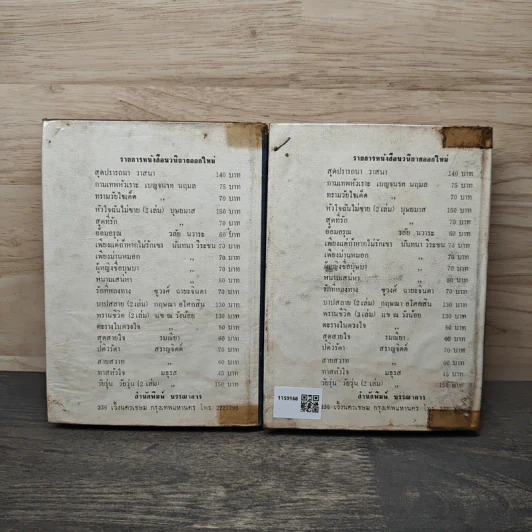 รายการหนังสือนวนิยายออกใหม่
สุดปรารถนา วาสนา 140 บาท
กามเทพหัวเราะ เบญจนรห นฤมล 75 บาท
ทรามวัยใจเด็ด ,, 70 บาท
หัวใจฉันไม่ขาย (2 เล่ม) บุษยมาส 150 บาท
สุดที่รัก ,, 70 บาท
อ้อมอรุณ วลัย นวาระ 60 บาท
เพียงแค่ถ้าหากไม่รักเขา นันทนา วีระชน 70 บาท
เพียงม่านหมอก ,, 70 บาท
ผู้หญิงชื่อบุษบา ,, 70 บาท
พนานเสน่หา ,, 60 บาท
รักที่หลงทาง ชูวงศ์ ฉายะจินดา 70 บาท
บาปสลาย (2 เล่ม) กฤษณา อโศกสิน 130 บาท
พรานชีวิต (2 เล่ม) แข ณ วังน้อย 130 บาท
ตะรางในดวงใจ ,, 60 บาท
สุดสายใจ รมณียา 60 บาท
ปดิวรัดา สราญจิตต์ 70 บาท
สายสวาท ,, 60 บาท
ทาสหัวใจ มธุรส 45 บาท
วัยรุ่น วัยวุ่น (2 เล่ม) ,, 150 บาท
สำนักพิมพ์ บรรณาคาร
236 เวิ้งนครเขษม กรุงเทพมหานคร โทร.
รายการหนังสือนวนิยายออกใหม่
สุดปรารถนา วาสนา 140 บาท
กามเทพหัวเราะ เบญจนรห นฤมล 75 บาท
ทรามวัยใจเด็ด ,, 70 บาท
หัวใจฉันไม่ขาย (2 เล่ม) บุษยมาส 150 บาท
สุดที่รัก ,, 70 บาท
อ้อมอรุณ วลัย นวาระ 60 บาท
เพียงแค่ถ้าหากไม่รักเขา นันทนา วีระชน 70 บาท
เพียงม่านหมอก ,, 70 บาท
ผู้หญิงชื่อบุษบา ,, 70 บาท
พนานเสน่หา ,, 60 บาท
รักที่หลงทาง ชูวงศ์ ฉายะจินดา 70 บาท
บาปสลาย (2 เล่ม) กฤษณา อโศกสิน 130 บาท
พรานชีวิต (2 เล่ม) แข ณ วังน้อย 130 บาท
ตะรางในดวงใจ ,, 60 บาท
สุดสายใจ รมณียา 60 บาท
ปดิวรัดา สราญจิตต์ 70 บาท
สายสวาท ,, 60 บาท
ทาสหัวใจ มธุรส 45 บาท
วัยรุ่น วัยวุ่น (2 เล่ม) ,, 150 บาท
สำนักพิมพ์ บรรณาคาร
236 เวิ้งนครเขษม กรุงเทพมหานคร โทร.